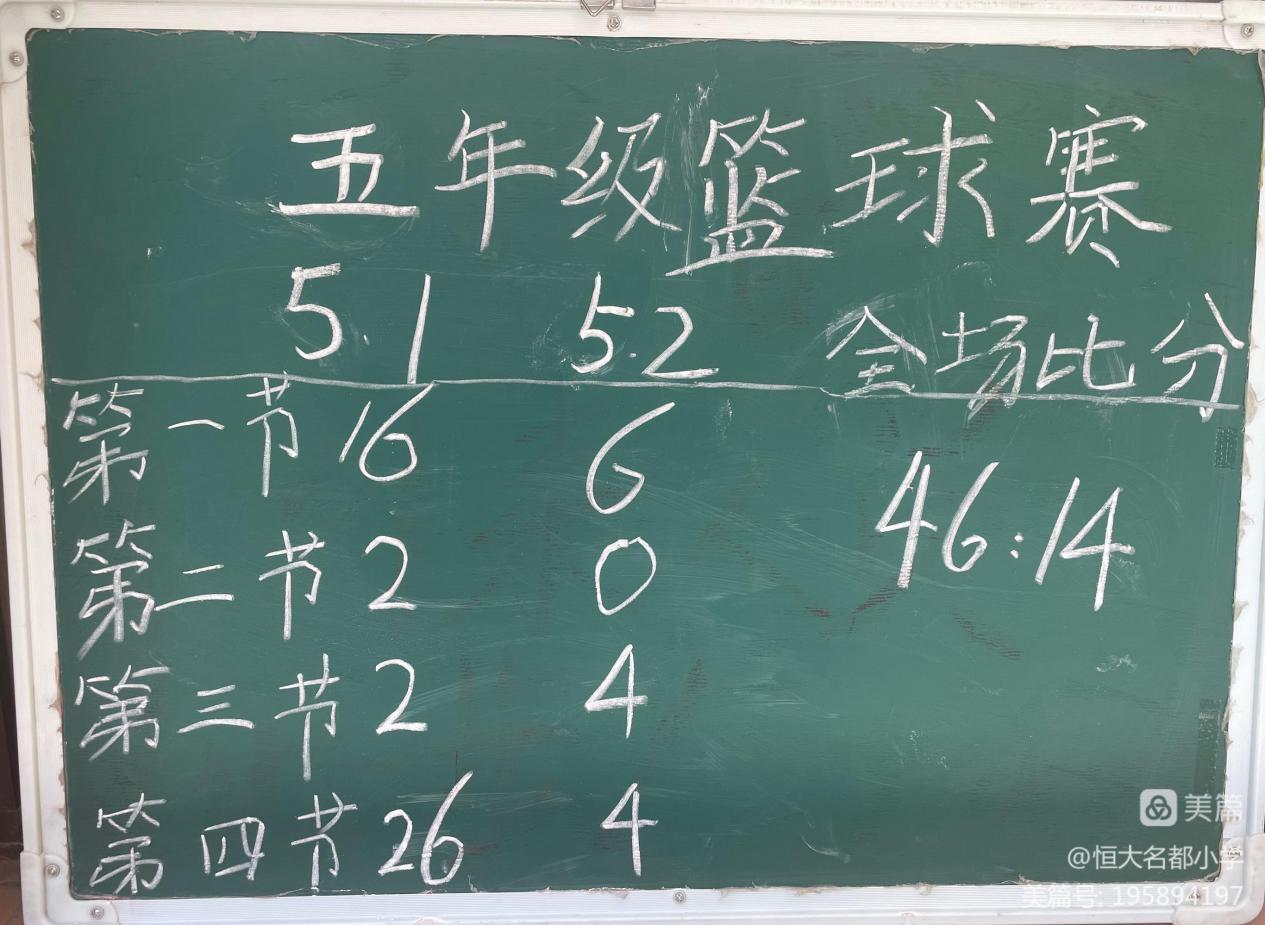 五年级篮球赛
5.1 5.2 全场比分
第一节 16 6
46:14
第二节 2 0
第三节 2 4
第四节 26 4
美篇
@恒大名都小学
美篇号: 195894197